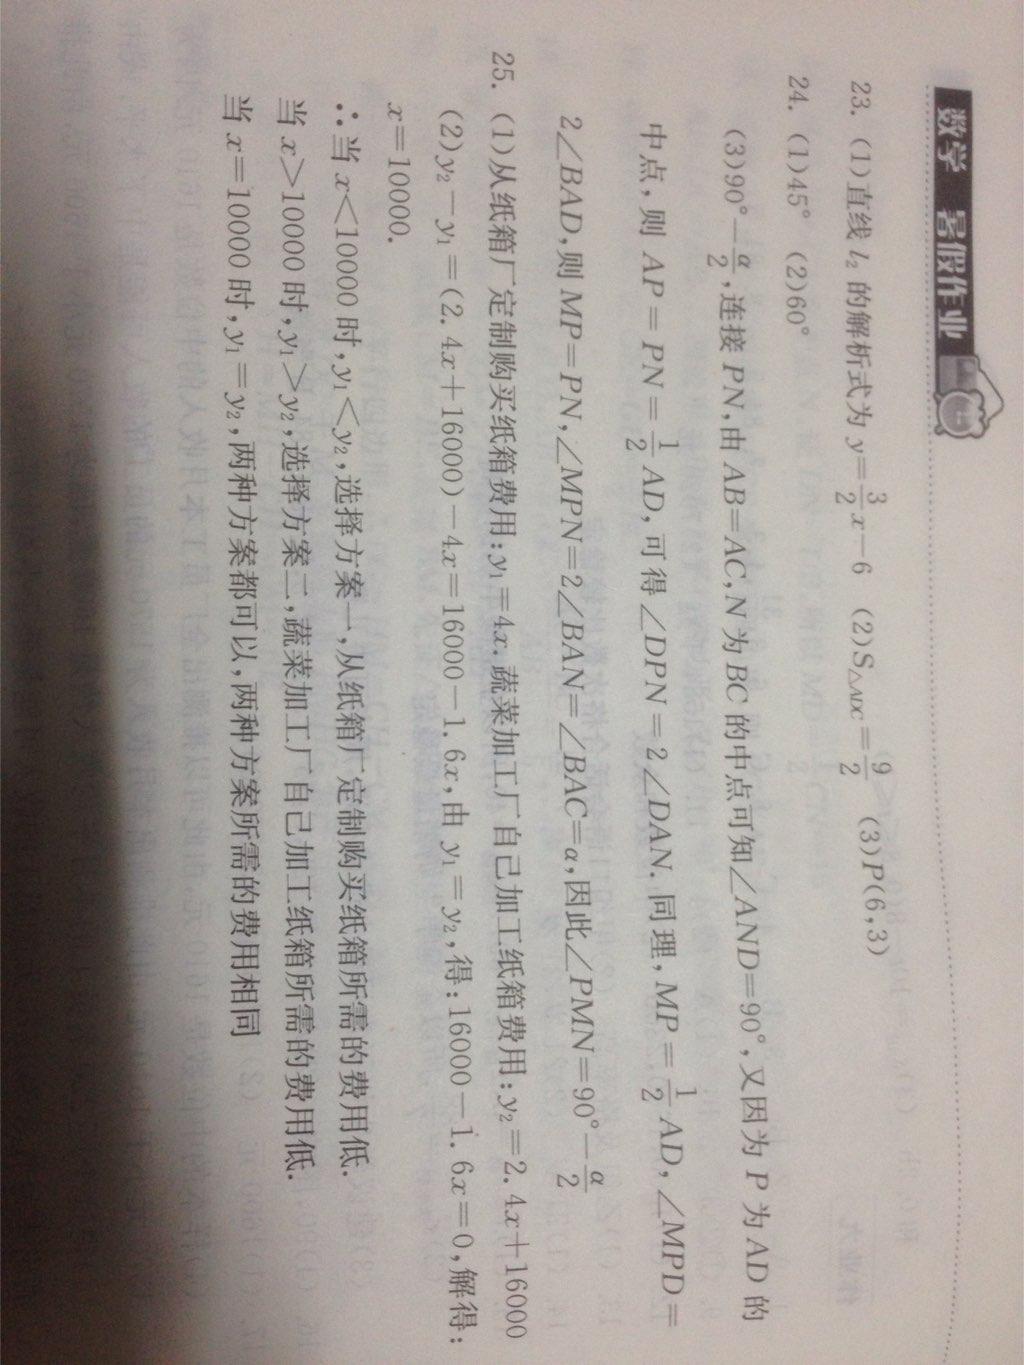 数学 暑假作业
23. (1)直线 l₂ 的解析式为 y=3/2x-6 (2)S△ADC=9/2 (3)P(6,3)
24. (1)45° (2)60°
(3)90°-α/2,连接 PN,由 AB=AC,N 为 BC 的中点可知∠AND=90°,又因为 P 为 AD 的
中点,则 AP=PN=1/2AD,可得∠DPN=2∠DAN.同理,MP=1/2AD,∠MPD=
2∠BAD,则 MP=PN,∠MPN=2∠BAN=∠BAC=α,因此∠PMN=90°-α/2
25. (1)从纸箱厂定制购买纸箱费用:y₁=4x.蔬菜加工厂自己加工纸箱费用:y₂=2.4x+16000
(2)y₂-y₁=(2.4x+16000)-4x=16000-1.6x,由 y₁=y₂,得:16000-1.6x=0,解得:
x=10000.
∴当 x<10000 时,y₁<y₂,选择方案一,从纸箱厂定制购买纸箱所需的费用低.
当 x>10000 时,y₁>y₂,选择方案二,蔬菜加工厂自己加工纸箱所需的费用低.
当 x=10000 时,y₁=y₂,两种方案都可以,两种方案所需的费用相同